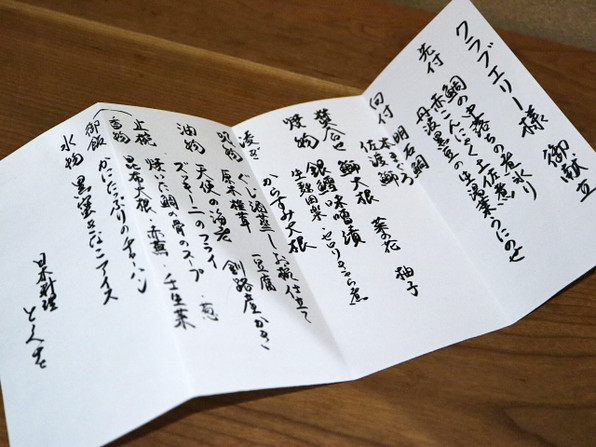 クラブエリー様 御献立
先付 鯛の中落ちの煮凍り
赤こんにゃく土佐煮
丹波黒豆の生湯葉うにのせ
向付 明石鯛
本まぐろ
佐渡鰤 菜の花 柚子
焚合せ 鰤大根
焼物 銀鱈味噌漬
生麩田楽 セロリきゃら煮
からすみ大根
凌ぎ ぐじ酒蒸し お椀仕立て
豆腐
焜物 原木椎茸 釧路産かき
油物 天使の海老 葱
ズッキーニのフライ
焼いた鯛の骨のスープ
止椀 赤蕪 壬生菜
香物 昆布大根
御飯 かにたっぷりのチャーハン
水物 黒蜜きなこアイス
日本料理 とくを